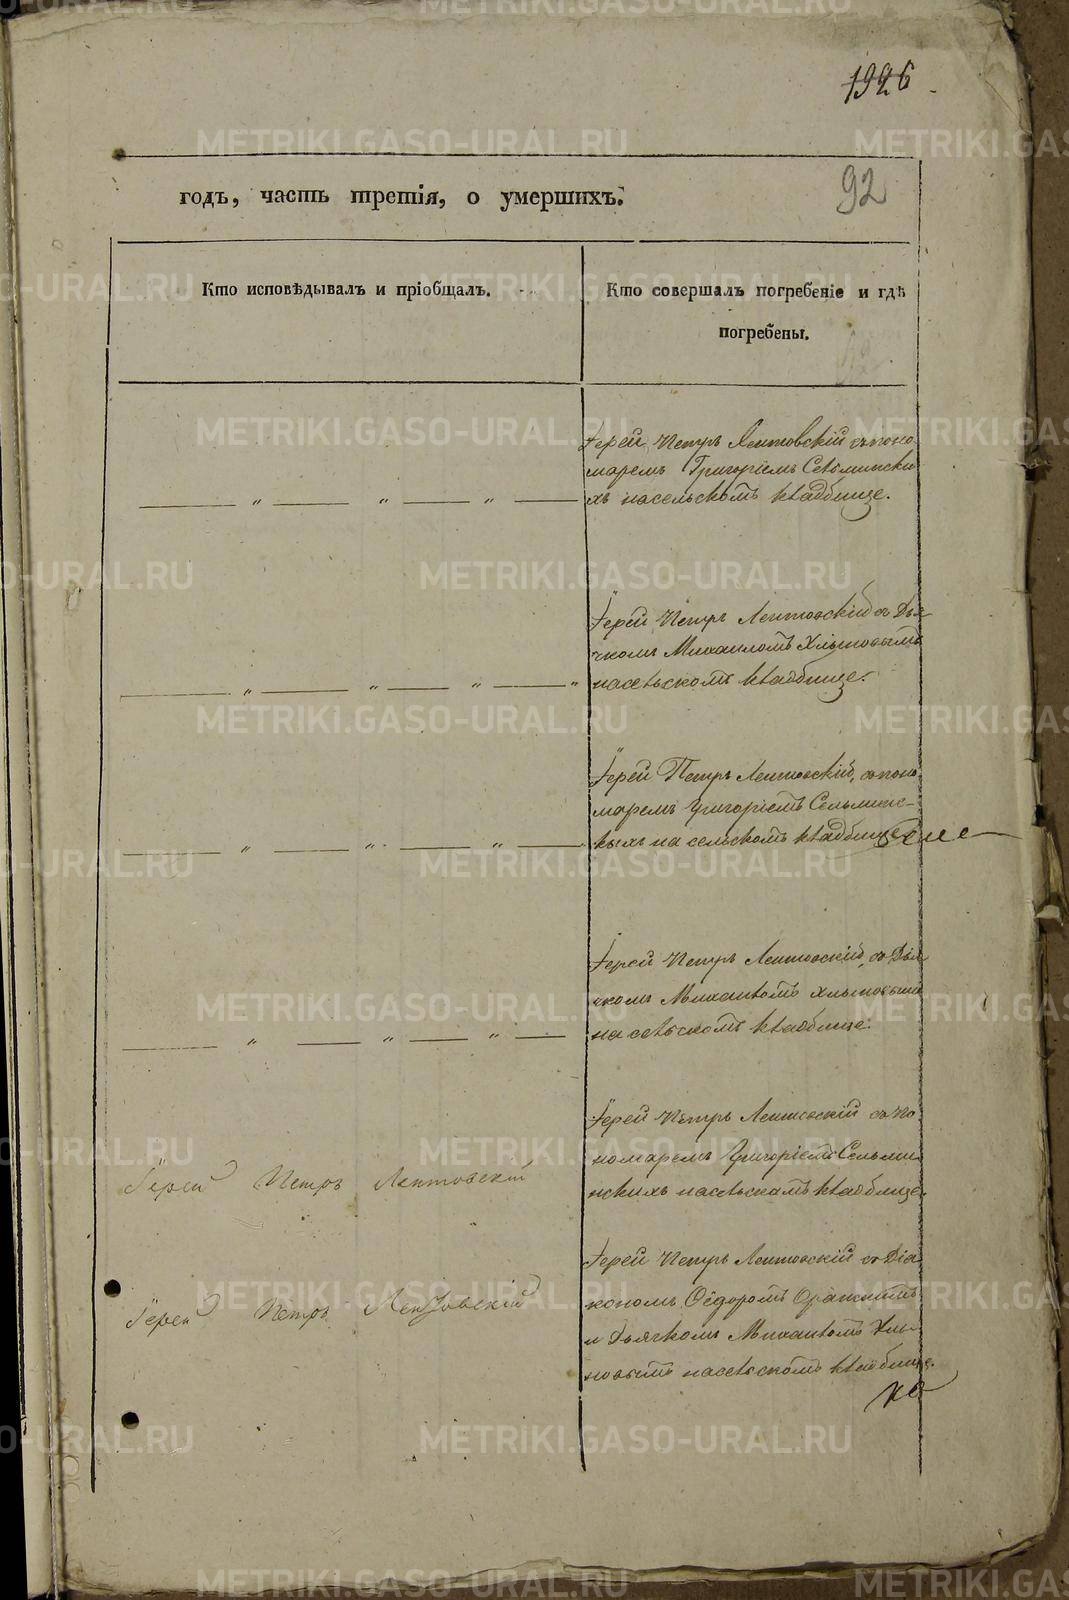 1926
92
годъ, часть третія, о умершихъ.
Кто исповѣдывалъ и пріобщалъ.
Кто совершалъ погребеніе и гдѣ
погребены.
Іерей Петръ Лептовскій съ поно-
маремъ Григоріемъ Сельмински-
хъ на сельскомъ кладбище.
Іерей Петръ Лептовскій съ Дья-
чкомъ Михаиломъ Хлыновымъ
на сельскомъ кладбище.
Іерей Петръ Лептовскій, съ поно-
маремъ Григоріемъ Сельминс-
кыхъ на сельскомъ кладбище
Іерей Петръ Лептовскій, съ Дья-
чкомъ Михаиломъ Хлыновымъ
на сельскомъ кладбище.
Іерей Петръ Лептовскій съ по-
номаремъ Григоріемъ Сельми-
нскихъ на сельскамъ кладбище.
Іерей Петръ Лептовскій
Іерей Петръ Лептовскій съ Діа-
кономъ Ѳедоромъ
и Дьячкомъ Михаиломъ Хлы-
новымъ на сельскомъ кладбище.
Іерей Петръ Лептовскій
METRIKI.GASO-URAL.RU